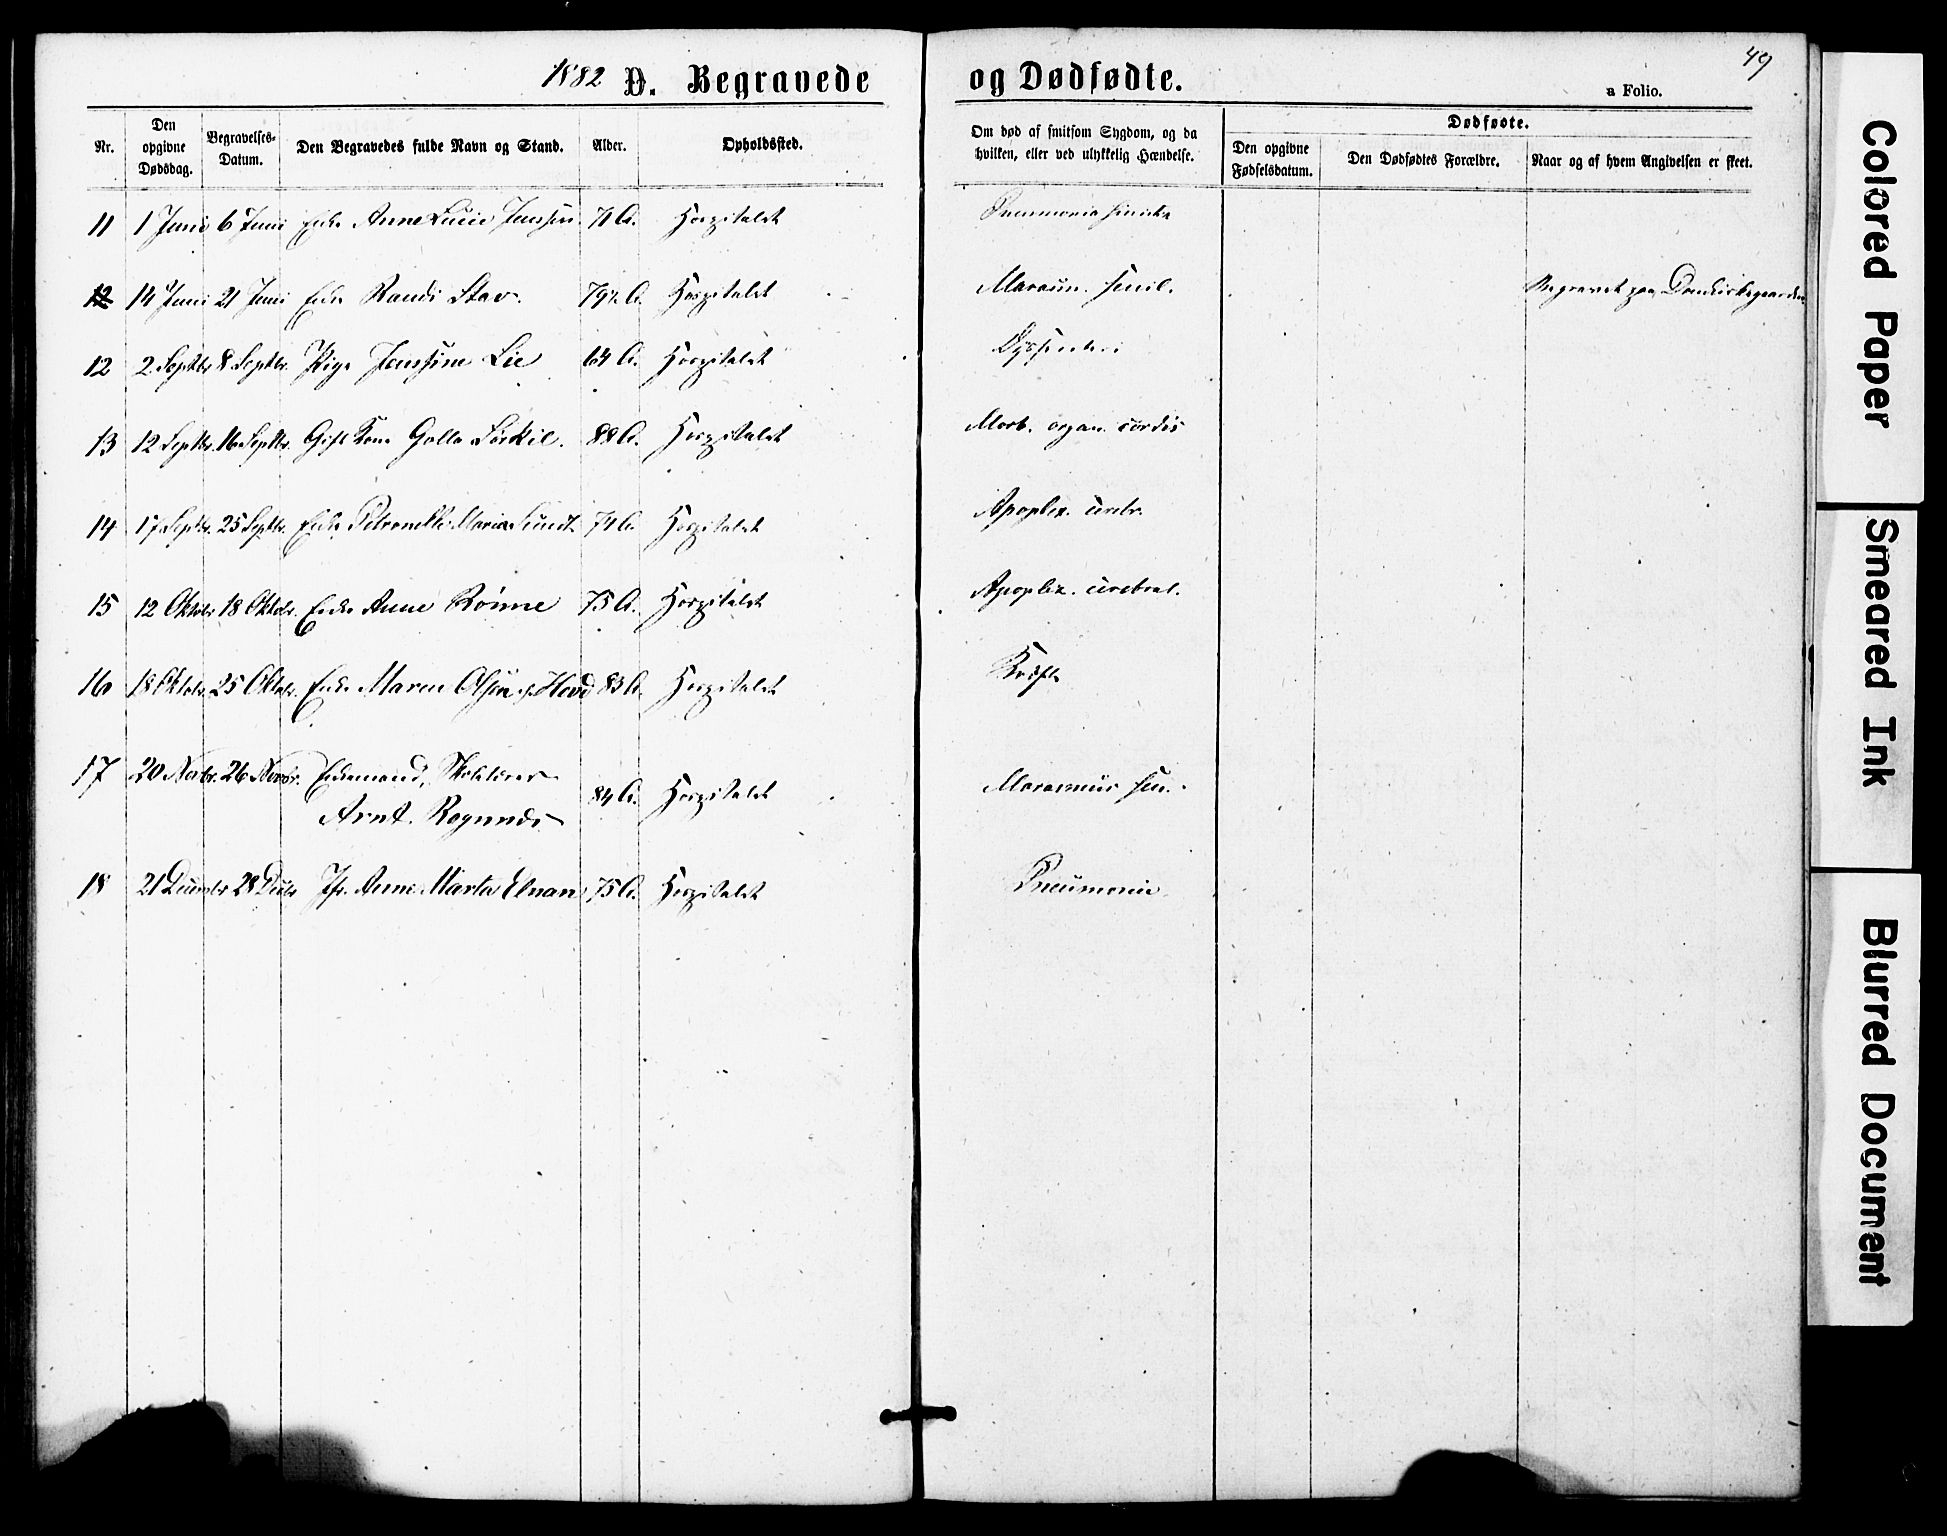 1882 D. Begravede og Dødfødte. 49
a Folio.
Nr. Den opgivne Dødsdag. Begravelses-Datum. Den Begravedes fulde Navn og Stand. Alder. Opholdssted. Om død af smitsom Sygdom, og da hvilken, eller ved ulykkelig Hændelse. Dødfødte. Den opgivne Fødselsdatum. Den Dødfødtes Forældre. Naar og af hvem Angivelsen er skeet.
11 1 Juni 6 Juni Enke Anne Lucie Jenssen 71 A. Hospitalet Pneumonia sinistr
12 14 Juni 21 Juni Enke Randi Stav. 79½ A. Hospitalet Marasm. senil. Begravet paa Domkirkegaarden
12 2 Septbr 8 Septbr. Pige Jenssine Lie 64 A. Hospitalet Dyssenteri
13 12 Septbr. 16 Septbr. Gift Kone Golla 88 A. Hospitalet Morb. organ. cordis
14 17 Septbr. 25 Septbr. Enke Petronelle Maria Sundt 74 A. Hospitalet Apoplex. cerebr.
15 12 Oktobr 18 Oktobr. Enke Anne Rönne 75 A. Hospitalet Apoplex. cerebral.
16 18 Oktobr. 25 Oktobr. Enke Maren Olsen 83 A. Hospitalet Kræft
17 20 Novbr. 26 Novbr. Enkemand, Skolelærer
Arnt. Rognnæs 84 A. Hospitalet Marasmus sen.
18 21 Decembr 28 Decbr Jfr. Anne Marta Elnan 75 A. Hospitalet Pneumonie
Colored Paper
Smeared Ink
Blurred Document